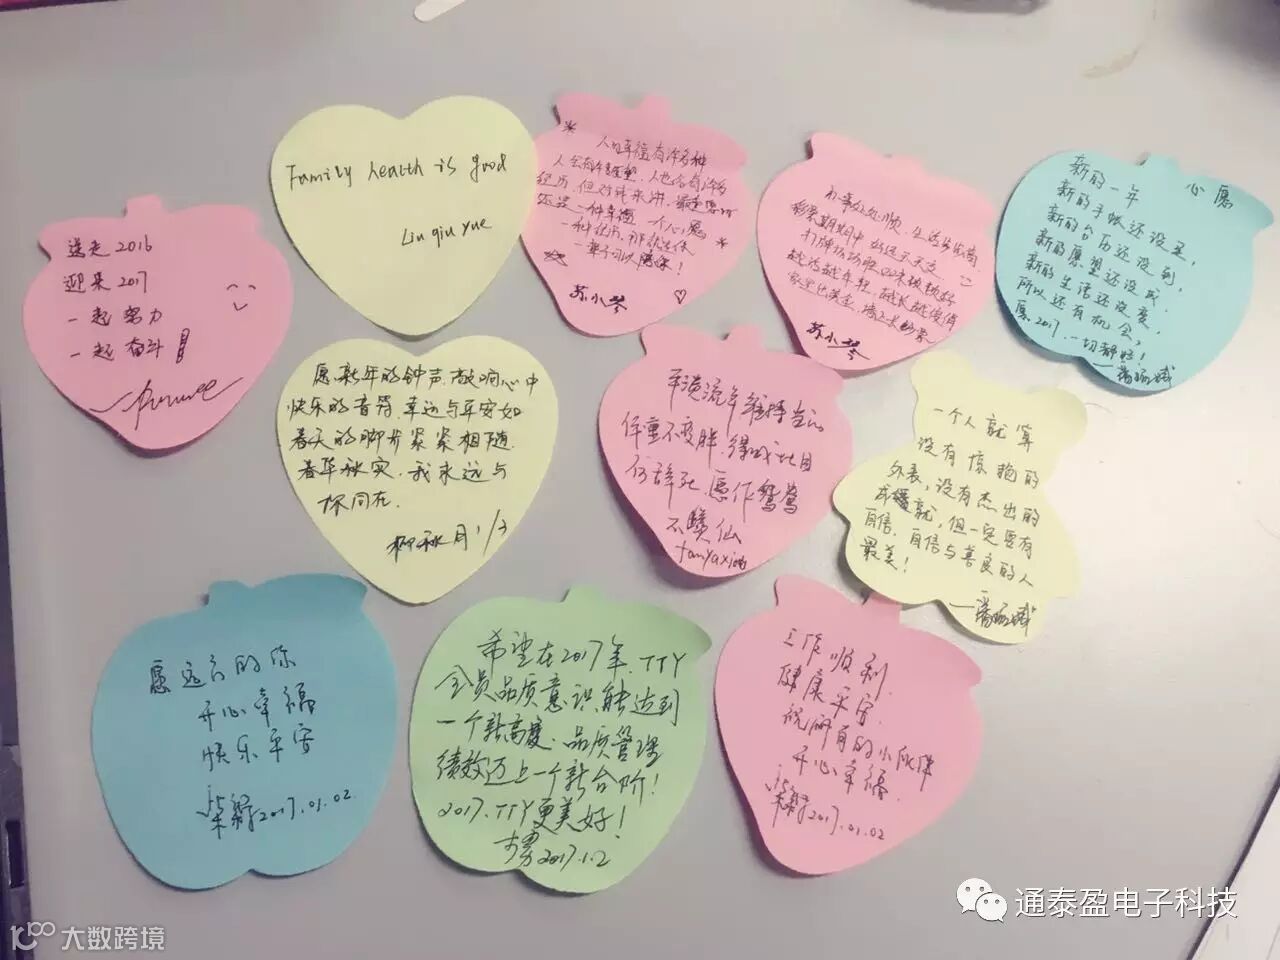 送走2016
迎来2017
一起努力
一起奋斗
Family health is good
Liu qiu yue
人的幸福有许多种
人会有许多愿望,人也会有许多
经历,但对我来讲,最
还是一种幸福
一种
一辈子可以
苏小琴
办事处处顺,生活步步高
彩票期期中,好运天天交
打牌场场胜,口味顿顿好
越活越年轻,越长越俊俏
家里
苏小琴
心愿
新的一年
新的手账还没买,
新的台历还没到,
新的愿望还没成,
新的生活还没变,
所以还有机会,
愿2017,一切静好!
愿新年的钟声,敲响心中
快乐的音符,幸运与平安如
春天的脚步紧紧相随,
春华秋实,我永远与
你同在.
柳秋月 1/3
平淡流年维持当
体重不变胖.得成比目
何辞死,愿作鸳鸯
不羡仙
一个人就算
没有惊艳的
外表,没有杰出的
成就,但一定要有
自信,自信与善良的人
最美!
愿远行的你
开心幸福
快乐平安
2017.01.02
希望在2017年,TTY
全员品质意识能达到
一个新高度,品质管理
绩效迈上一个新台阶!
2017.TTY更美好!
2017.1.2
工作顺利.
健康平安.
祝所有的小伙伴
开心幸福.
2017.01.02
通泰盈电子科技
大数跨境